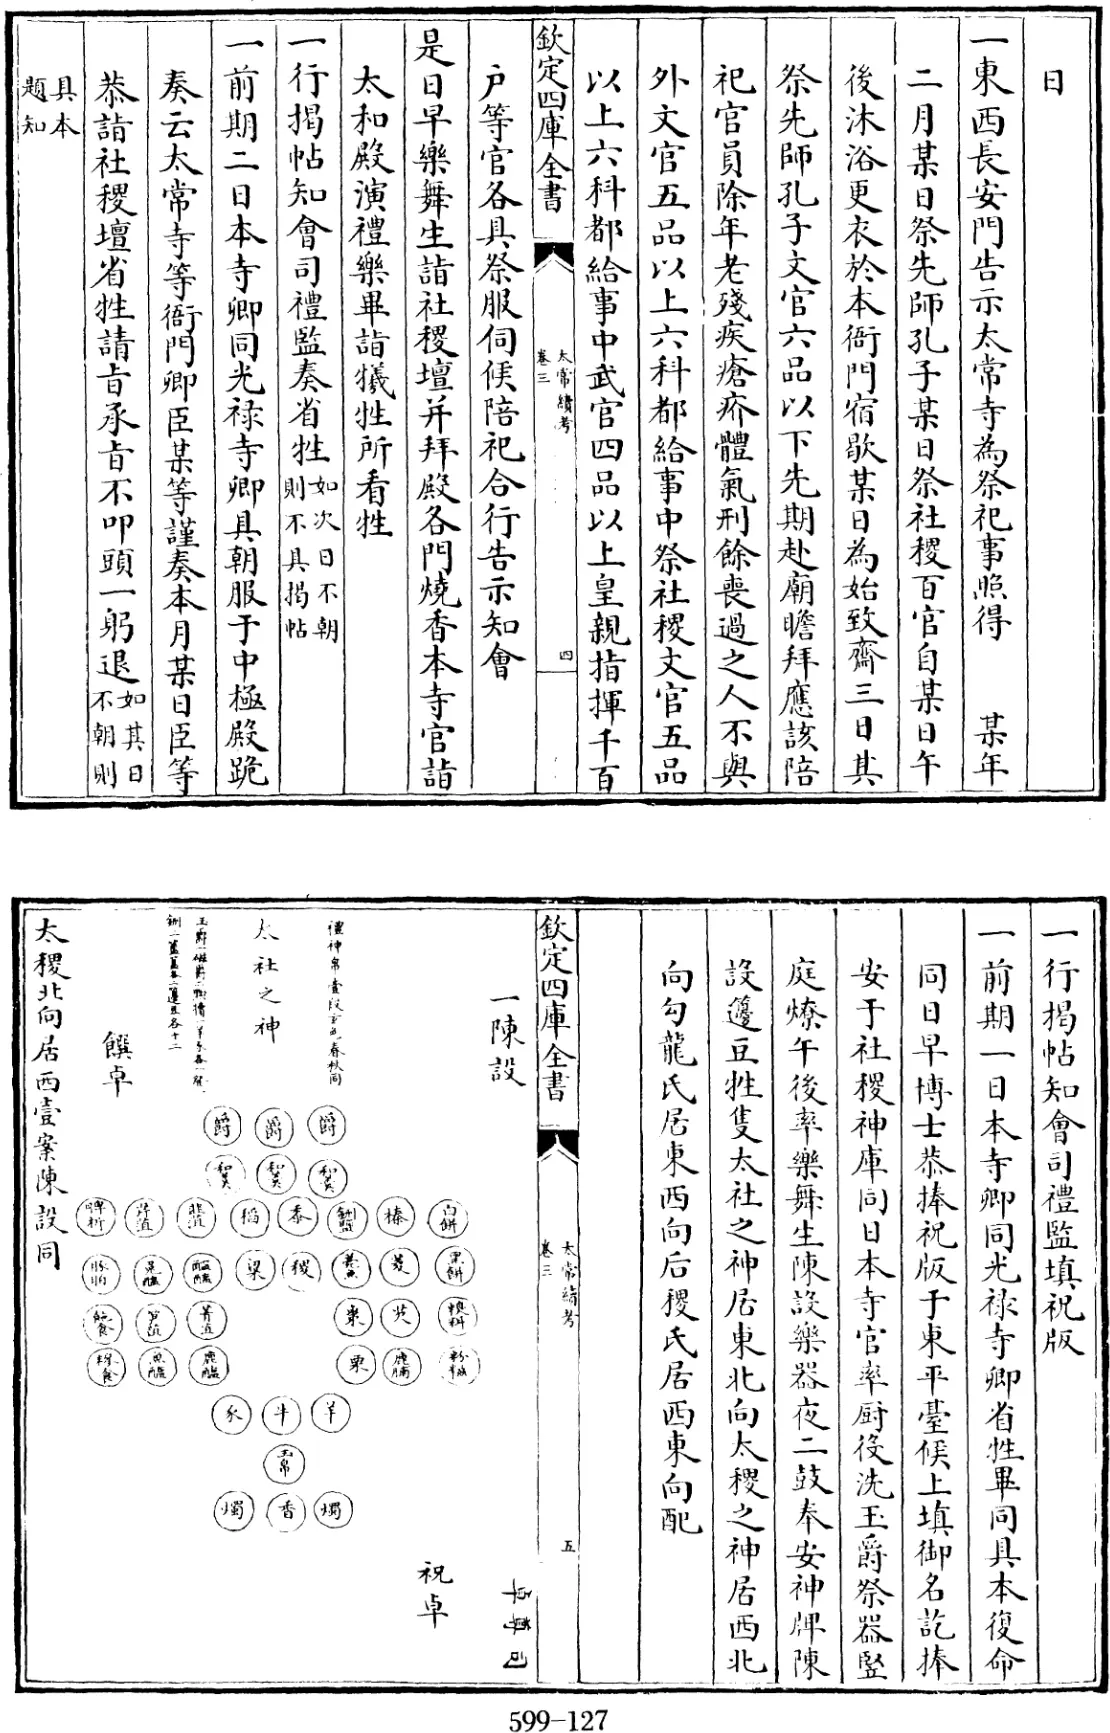 日
一東西長安門告示太常寺為祭祀事照得 某年
二月某日祭先師孔子某日祭社稷百官自某日午
後沐浴更衣於本衙門宿歇某日為始致齋三日其
祭先師孔子文官六品以下先期赴廟瞻拜應該陪
祀官員除年老殘疾瘡疥體氣刑餘喪過之人不與
外文官五品以上六科都給事中祭社稷文官五品
以上六科都給事中武官四品以上皇親指揮千百
欽定四庫全書
太常續考
卷三
四
户等官各具祭服伺候陪祀合行告示知會
是日早樂舞生詣社稷壇并拜殿各門燒香本寺官詣
太和殿演禮樂畢詣犧牲所看牲
一行揭帖知會司禮監奏省牲如次日不朝
則不具揭帖
一前期二日本寺卿同光禄寺卿具朝服于中極殿跪
奏云太常寺等衙門卿臣某等謹奏本月某日臣等
恭詣社稷壇省牲請旨承旨不叩頭一躬退如其日
不朝則
具本
題知
一行揭帖知會司禮監填祝版
一前期一日本寺卿同光禄寺卿省牲畢同具本復命
同日早博士恭捧祝版于東平臺候上填御名訖捧
安于社稷神庫同日本寺官率厨役洗玉爵祭器監
庭燎午後率樂舞生陳設樂器夜二鼓奉安神牌陳
設籩豆牲隻太社之神居東北向太稷之神居西北
向勾龍氏居東西向后稷氏居西東向配
欽定四庫全書
太常續考
卷三
五
一陳設
禮神帛壹段黑色春秋同
太社之神
饌卓
爵 爵 爵
和羹 和羹 和羹
脾析 芹菹 韭菹 稻 黍 形鹽 榛 白餅
豚胉 兔醢 醓醢 粱 稷 藁魚 菱 黑餅
飽食 笋菹 菁菹 棗 芡 糗料
糝食 魚醢 鹿醢 栗 鹿脯 粉餈
豕 牛 羊
玉帛
燭 香 燭
祝卓
太稷北向居西壹案陳設同
599-127